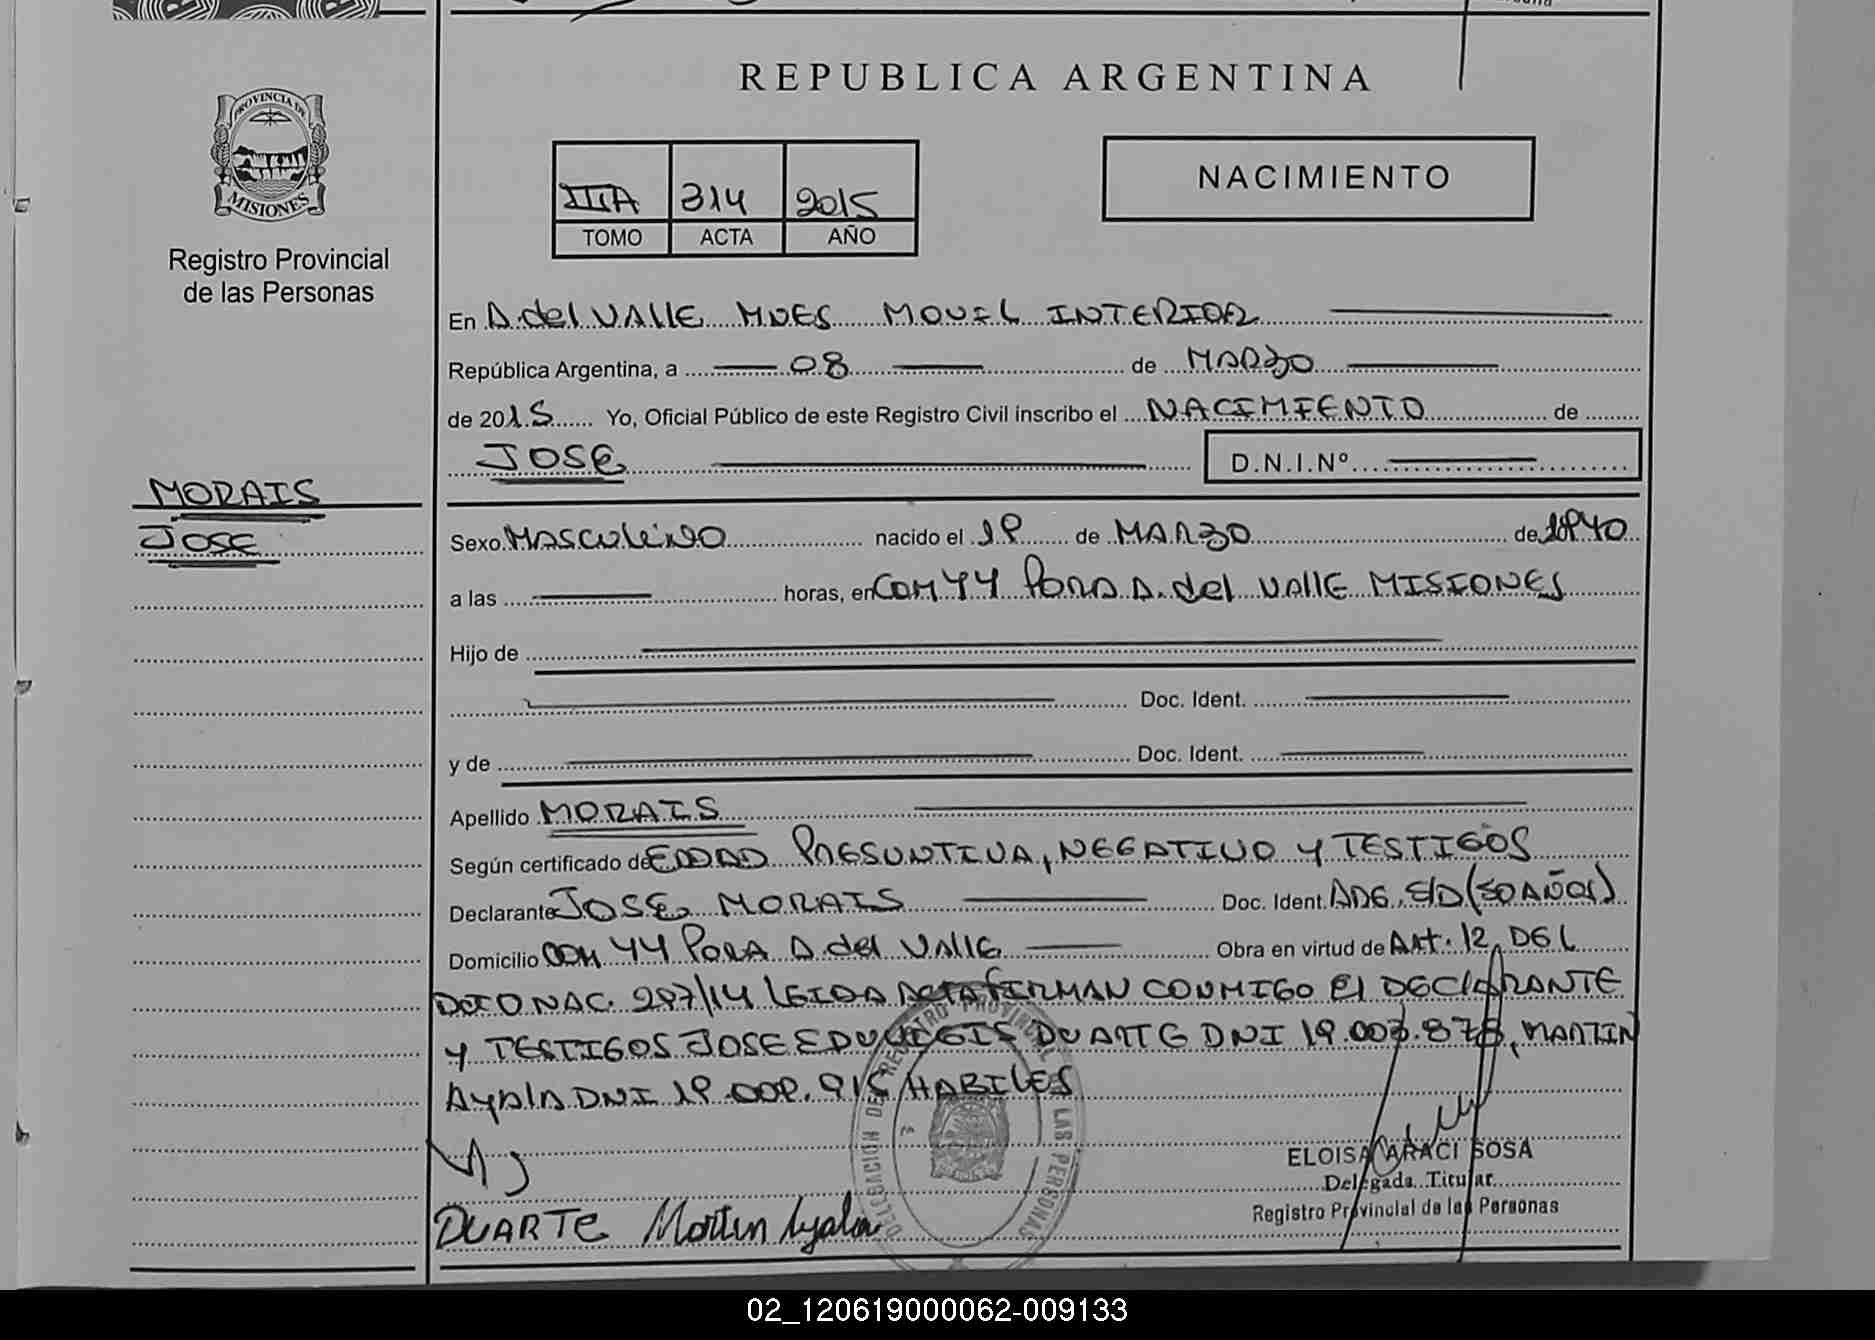 REPUBLICA ARGENTINA
PROVINCIA DE
MISIONES
Registro Provincial
de las Personas
IIIA 314 2015
TOMO ACTA AÑO
NACIMIENTO
En A. del VALLE MNES MOVIL INTERIOR
República Argentina, a 08 de MARZO
de 2015 Yo, Oficial Público de este Registro Civil inscribo el NACIMIENTO de
JOSE D.N.I.Nº
MORAIS
JOSE
Sexo MASCULINO nacido el 19 de MARZO de
a las horas, en COM YY PORA A. del VALLE MISIONES
Hijo de
Doc. Ident.
y de Doc. Ident.
Apellido MORAIS
Según certificado de EDAD PRESUNTIVA, NEGATIVO Y TESTIGOS
Declarante JOSE MORAIS Doc. Ident. S/D (50 AÑOS)
Domicilio COM YY PORA A. del VALLE Obra en virtud de Art. 12 DEL
DCTO NAC. 297/14 LEIDA ACTA FIRMAN CONMIGO El DECLARANTE
Y TESTIGOS JOSE DUARTE DNI 19.003.878, MARTIN
AYALA DNI 19.009.915 HABILES
DELEGACION DEL REGISTRO PROVINCIAL LAS PERSONAS
ELOISA ARACI SOSA
Delegada Titular
Registro Provincial de las Personas
DUARTE Martin Ayala
02_120619000062-009133